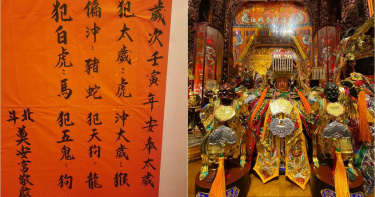 歲次壬寅年安奉太歲
犯太歲：虎 沖太歲：猴
偏沖：豬蛇 犯天狗：龍
犯白虎：馬 犯五鬼：狗
北斗
奠安宮敬啟